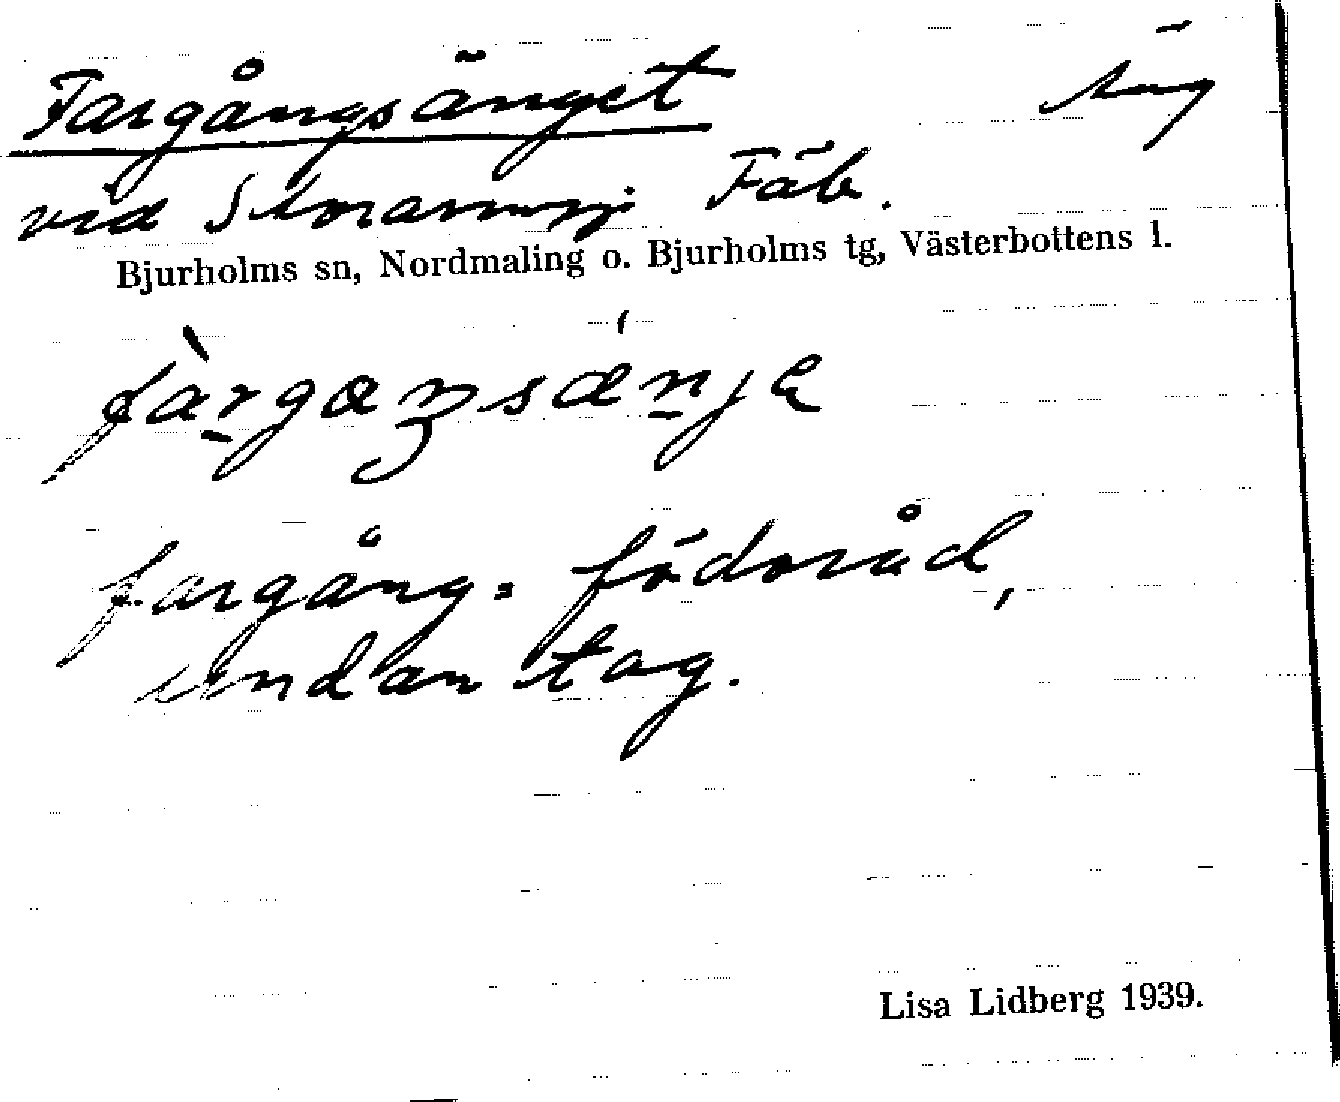 Fargångsänget Äng
vid Fäb.
Bjurholms sn, Nordmaling o. Bjurholms tg, Västerbottens l.
fargång = födoråd,
undantag.
Lisa Lidberg 1939.